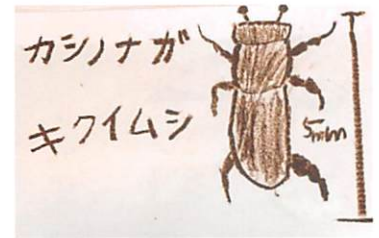 カシノナガ
キクイムシ
5mm